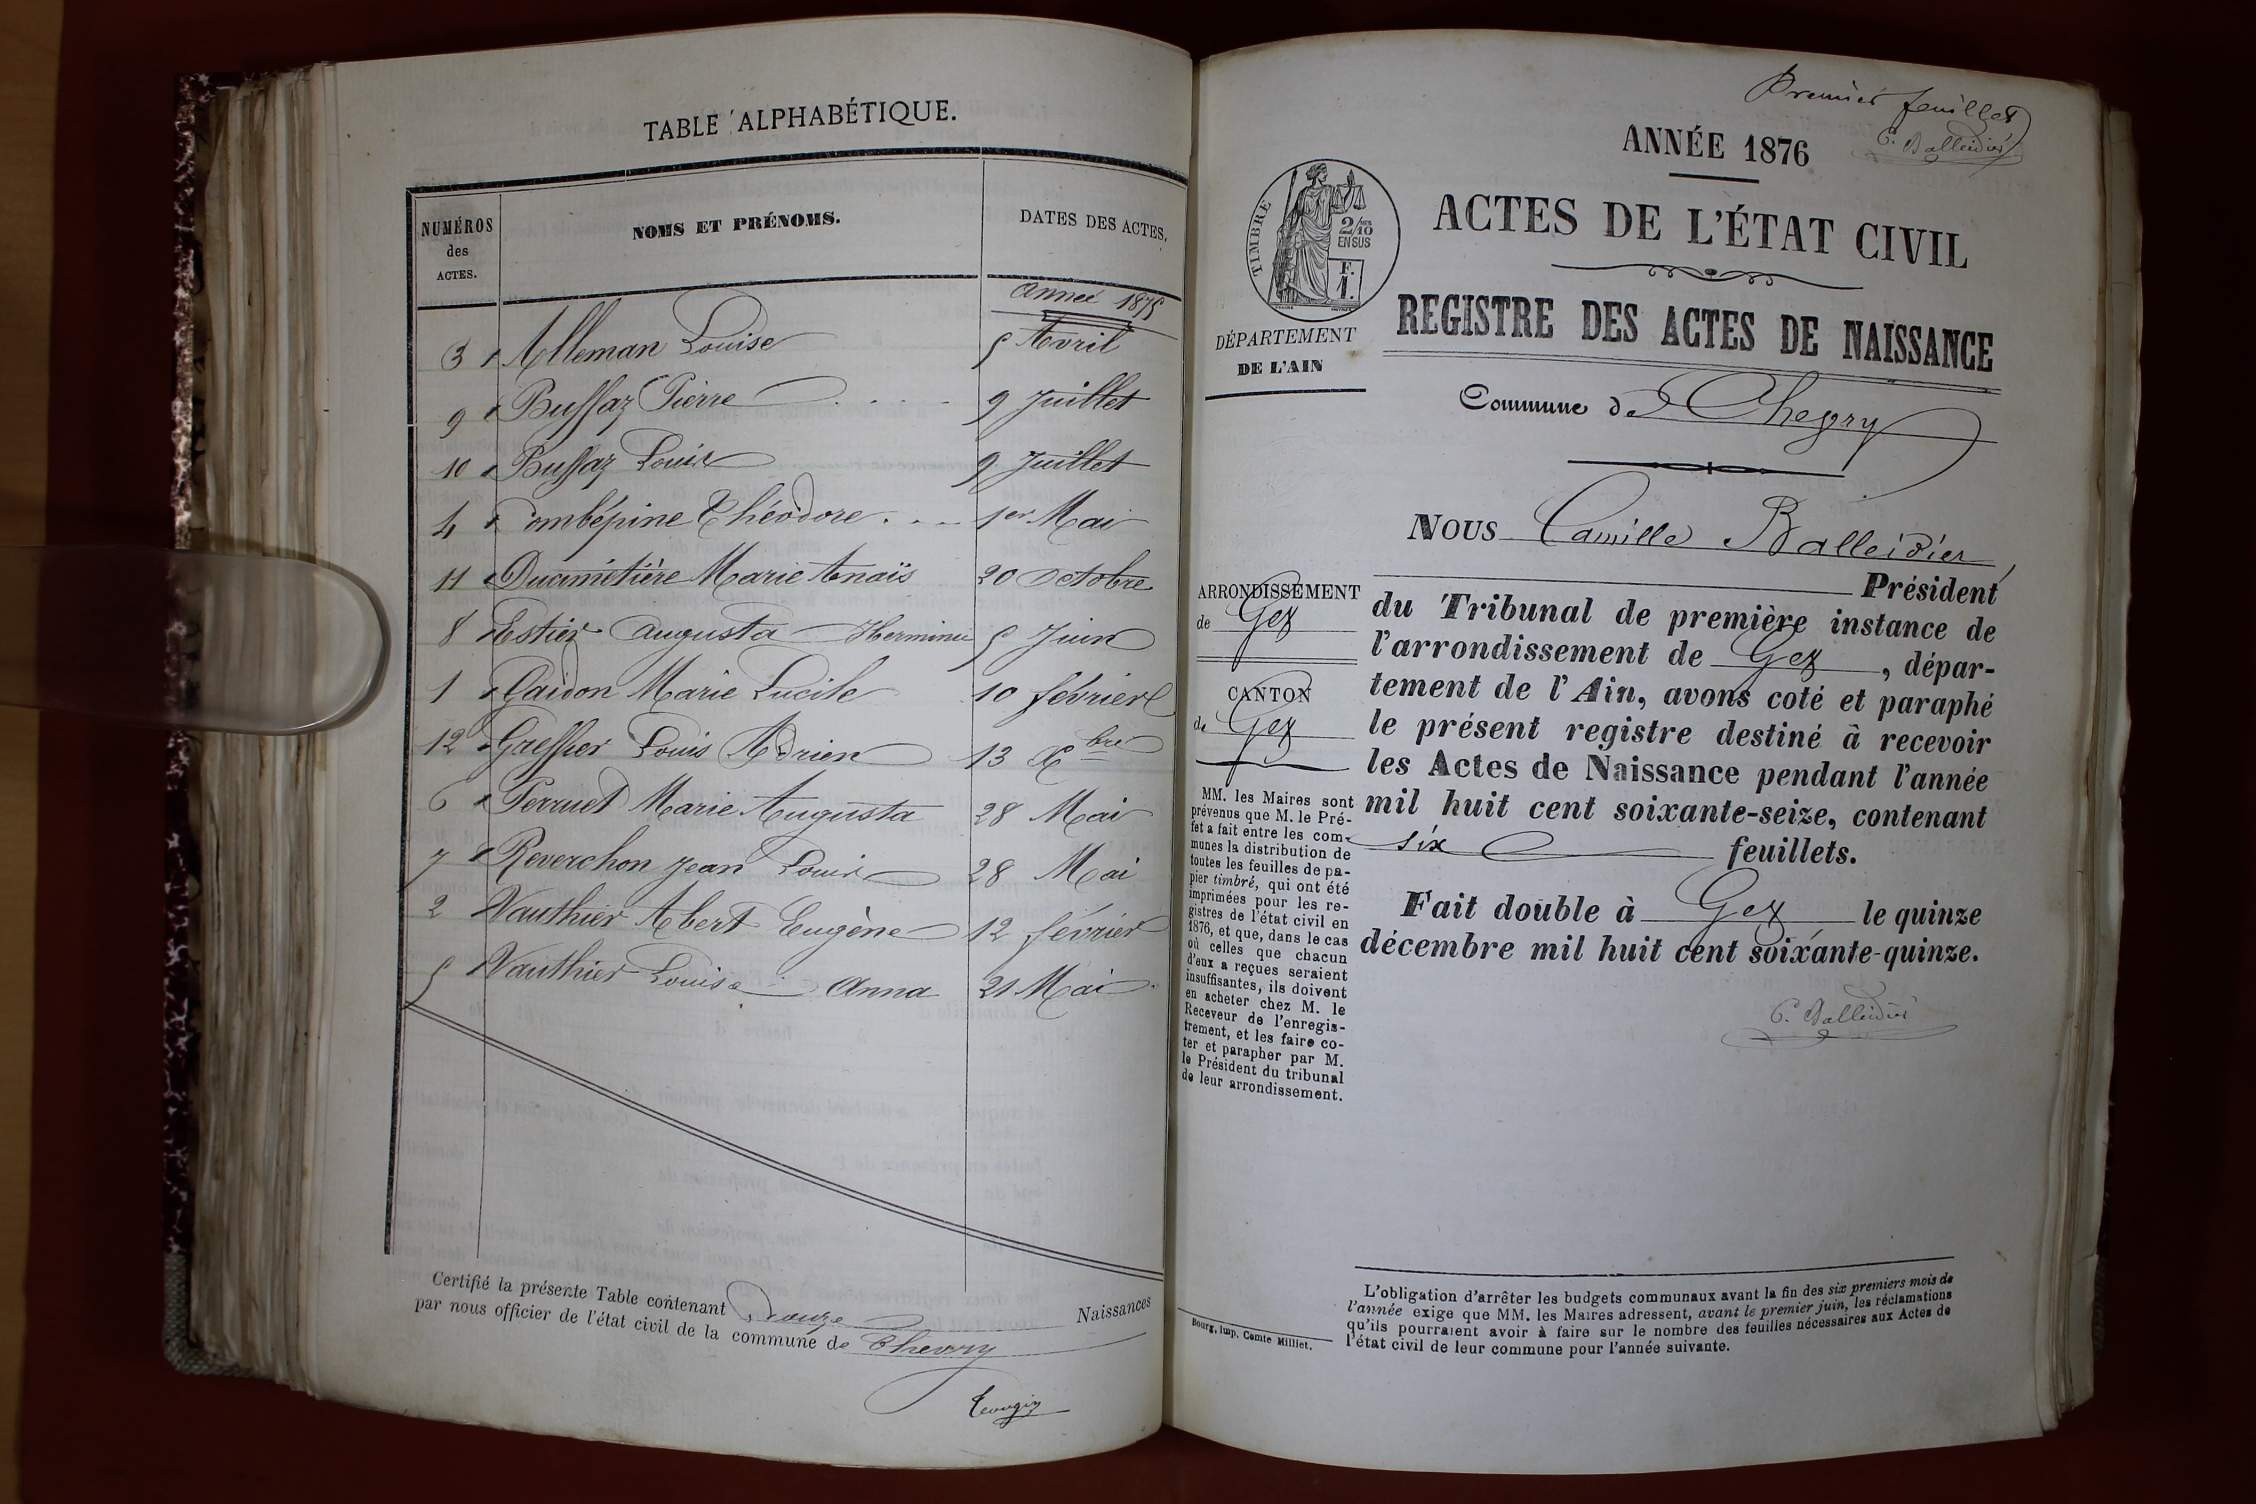 TABLE ALPHABÉTIQUE.
NUMÉROS des ACTES. NOMS ET PRÉNOMS. DATES DES ACTES.
Année 1875
3 Alleman Louise 5 Avril
9 Bussaz Pierre 9 Juillet
10 Bussaz Louis 9 Juillet
4 Combépine Théodore 1er Mai
11 Ducimetière Marie Anaïs 20 Octobre
8 Estier Augusta Herminie 5 Juin
1 Gaidon Marie Lucile 10 février
12 Louis Adrien 13 Xbre
6 Perruet Marie Augusta 28 Mai
7 Reverchon Jean Louis 28 Mai
2 Vauthier Abert Eugène 12 février
5 Vauthier Louise Anna 21 Mai
Certifié la présente Table contenant Douze Naissances
par nous officier de l'état civil de la commune de Chevry
Premier feuillet
C. Balleidier
ANNÉE 1876
ACTES DE L'ÉTAT CIVIL
REGISTRE DES ACTES DE NAISSANCE
TIMBRE
2/10
EN SUS
F.
1.
DÉPARTEMENT
DE L'AIN
Commune de Chevry
ARRONDISSEMENT
de Gex
CANTON
de Gex
MM. les Maires sont
prévenus que M. le Pré-
fet a fait entre les com-
munes la distribution de
toutes les feuilles de pa-
pier timbré, qui ont été
imprimées pour les re-
gistres de l'état civil en
1876, et que, dans le cas
où celles que chacun
d'eux a reçues seraient
insuffisantes, ils doivent
en acheter chez M. le
Receveur de l'enregis-
trement, et les faire co-
ter et parapher par M.
le Président du tribunal
de leur arrondissement.
NOUS Camille Balleidier,
Président
du Tribunal de première instance de
l'arrondissement de Gex, dépar-
tement de l'Ain, avons coté et paraphé
le présent registre destiné à recevoir
les Actes de Naissance pendant l'année
mil huit cent soixante-seize, contenant
six feuillets.
Fait double à Gex le quinze
décembre mil huit cent soixante-quinze.
C. Balleidier
Bourg, imp. Comte Milliet.
L'obligation d'arrêter les budgets communaux avant la fin des six premiers mois de
l'année exige que MM. les Maires adressent, avant le premier juin, les réclamations
qu'ils pourraient avoir à faire sur le nombre des feuilles nécessaires aux Actes de
l'état civil de leur commune pour l'année suivante.